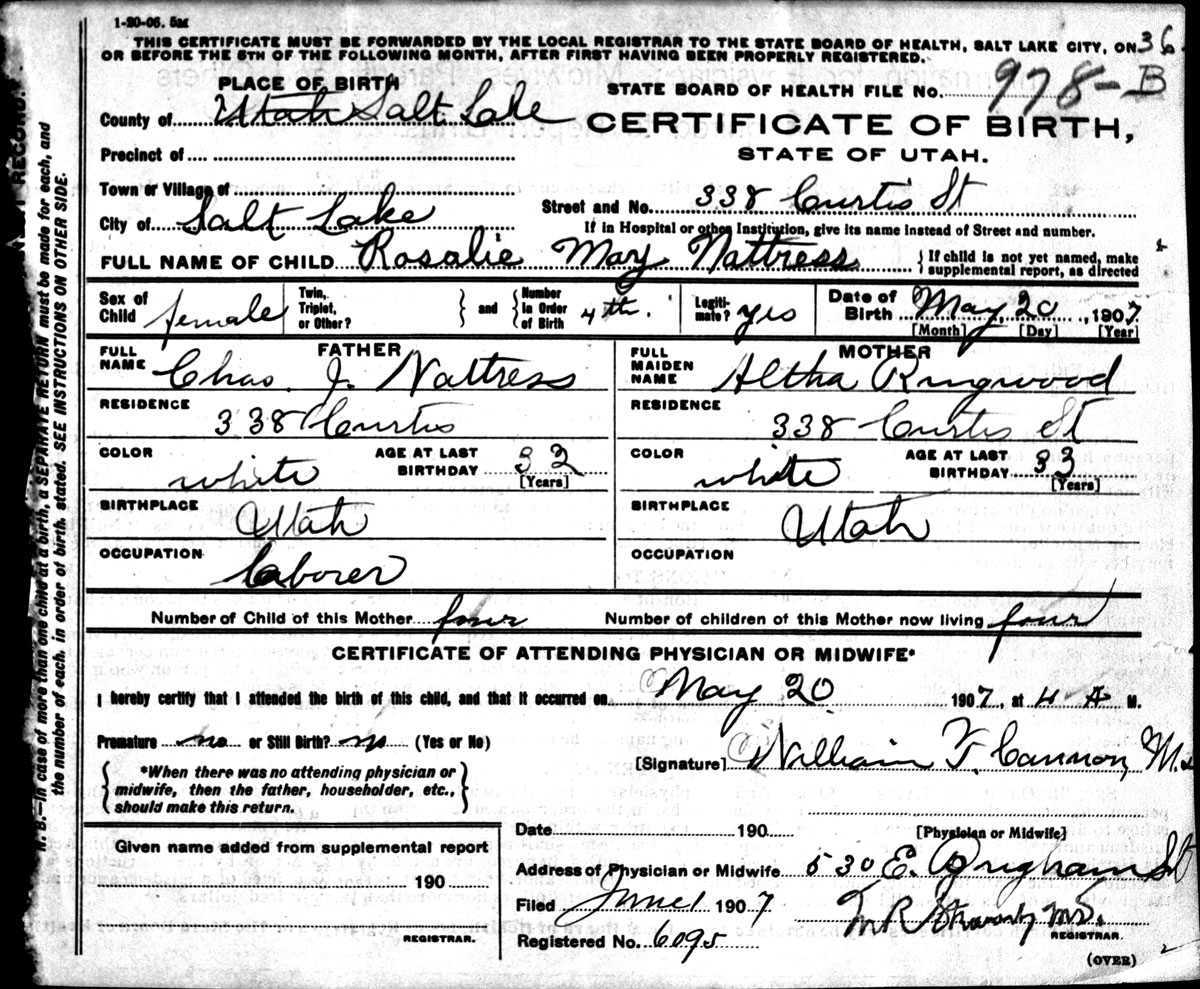 1-20-06. 5M
THIS CERTIFICATE MUST BE FORWARDED BY THE LOCAL REGISTRAR TO THE STATE BOARD OF HEALTH, SALT LAKE CITY, ON
OR BEFORE THE 5TH OF THE FOLLOWING MONTH, AFTER FIRST HAVING BEEN PROPERLY REGISTERED.
36
PLACE OF BIRTH
STATE BOARD OF HEALTH FILE No. 978-B
County of Utah Salt Lake
CERTIFICATE OF BIRTH,
Precinct of
STATE OF UTAH.
Town or Village of
Street and No. 338 Curtis St
City of Salt Lake
If in Hospital or other Institution, give its name instead of Street and number.
FULL NAME OF CHILD Rosalie May Nattress
If child is not yet named, make
supplemental report, as directed
Sex of Child female
Twin, Triplet, or Other?
and
Number in Order of Birth 4th.
Legitimate? yes
Date of Birth May 20, 1907
[Month] [Day] [Year]
FATHER
FULL NAME Chas. J. Nattress
RESIDENCE 338 Curtis
COLOR white
AGE AT LAST BIRTHDAY 32
[Years]
BIRTHPLACE Utah
OCCUPATION Laborer
MOTHER
FULL MAIDEN NAME Altha Ringwood
RESIDENCE 338 Curtis St
COLOR white
AGE AT LAST BIRTHDAY 33
[Years]
BIRTHPLACE Utah
OCCUPATION
Number of Child of this Mother four
Number of children of this Mother now living four
CERTIFICATE OF ATTENDING PHYSICIAN OR MIDWIFE*
I hereby certify that I attended the birth of this child, and that it occurred on May 20 1907, at 4 A M.
Premature no or Still Birth? no (Yes or No)
[Signature] William T. Cannon, M.D
*When there was no attending physician or
midwife, then the father, householder, etc.,
should make this return.
Date 190
[Physician or Midwife]
Given name added from supplemental report
190
REGISTRAR.
Address of Physician or Midwife 530 E. Brigham St
Filed June 1 1907
M R
M.D.
REGISTRAR.
Registered No. 6095
(OVER)
N. B.—In case of more than one child at a birth, a SEPARATE RETURN must be made for each, and
the number of each, in order of birth, stated. SEE INSTRUCTIONS ON OTHER SIDE.